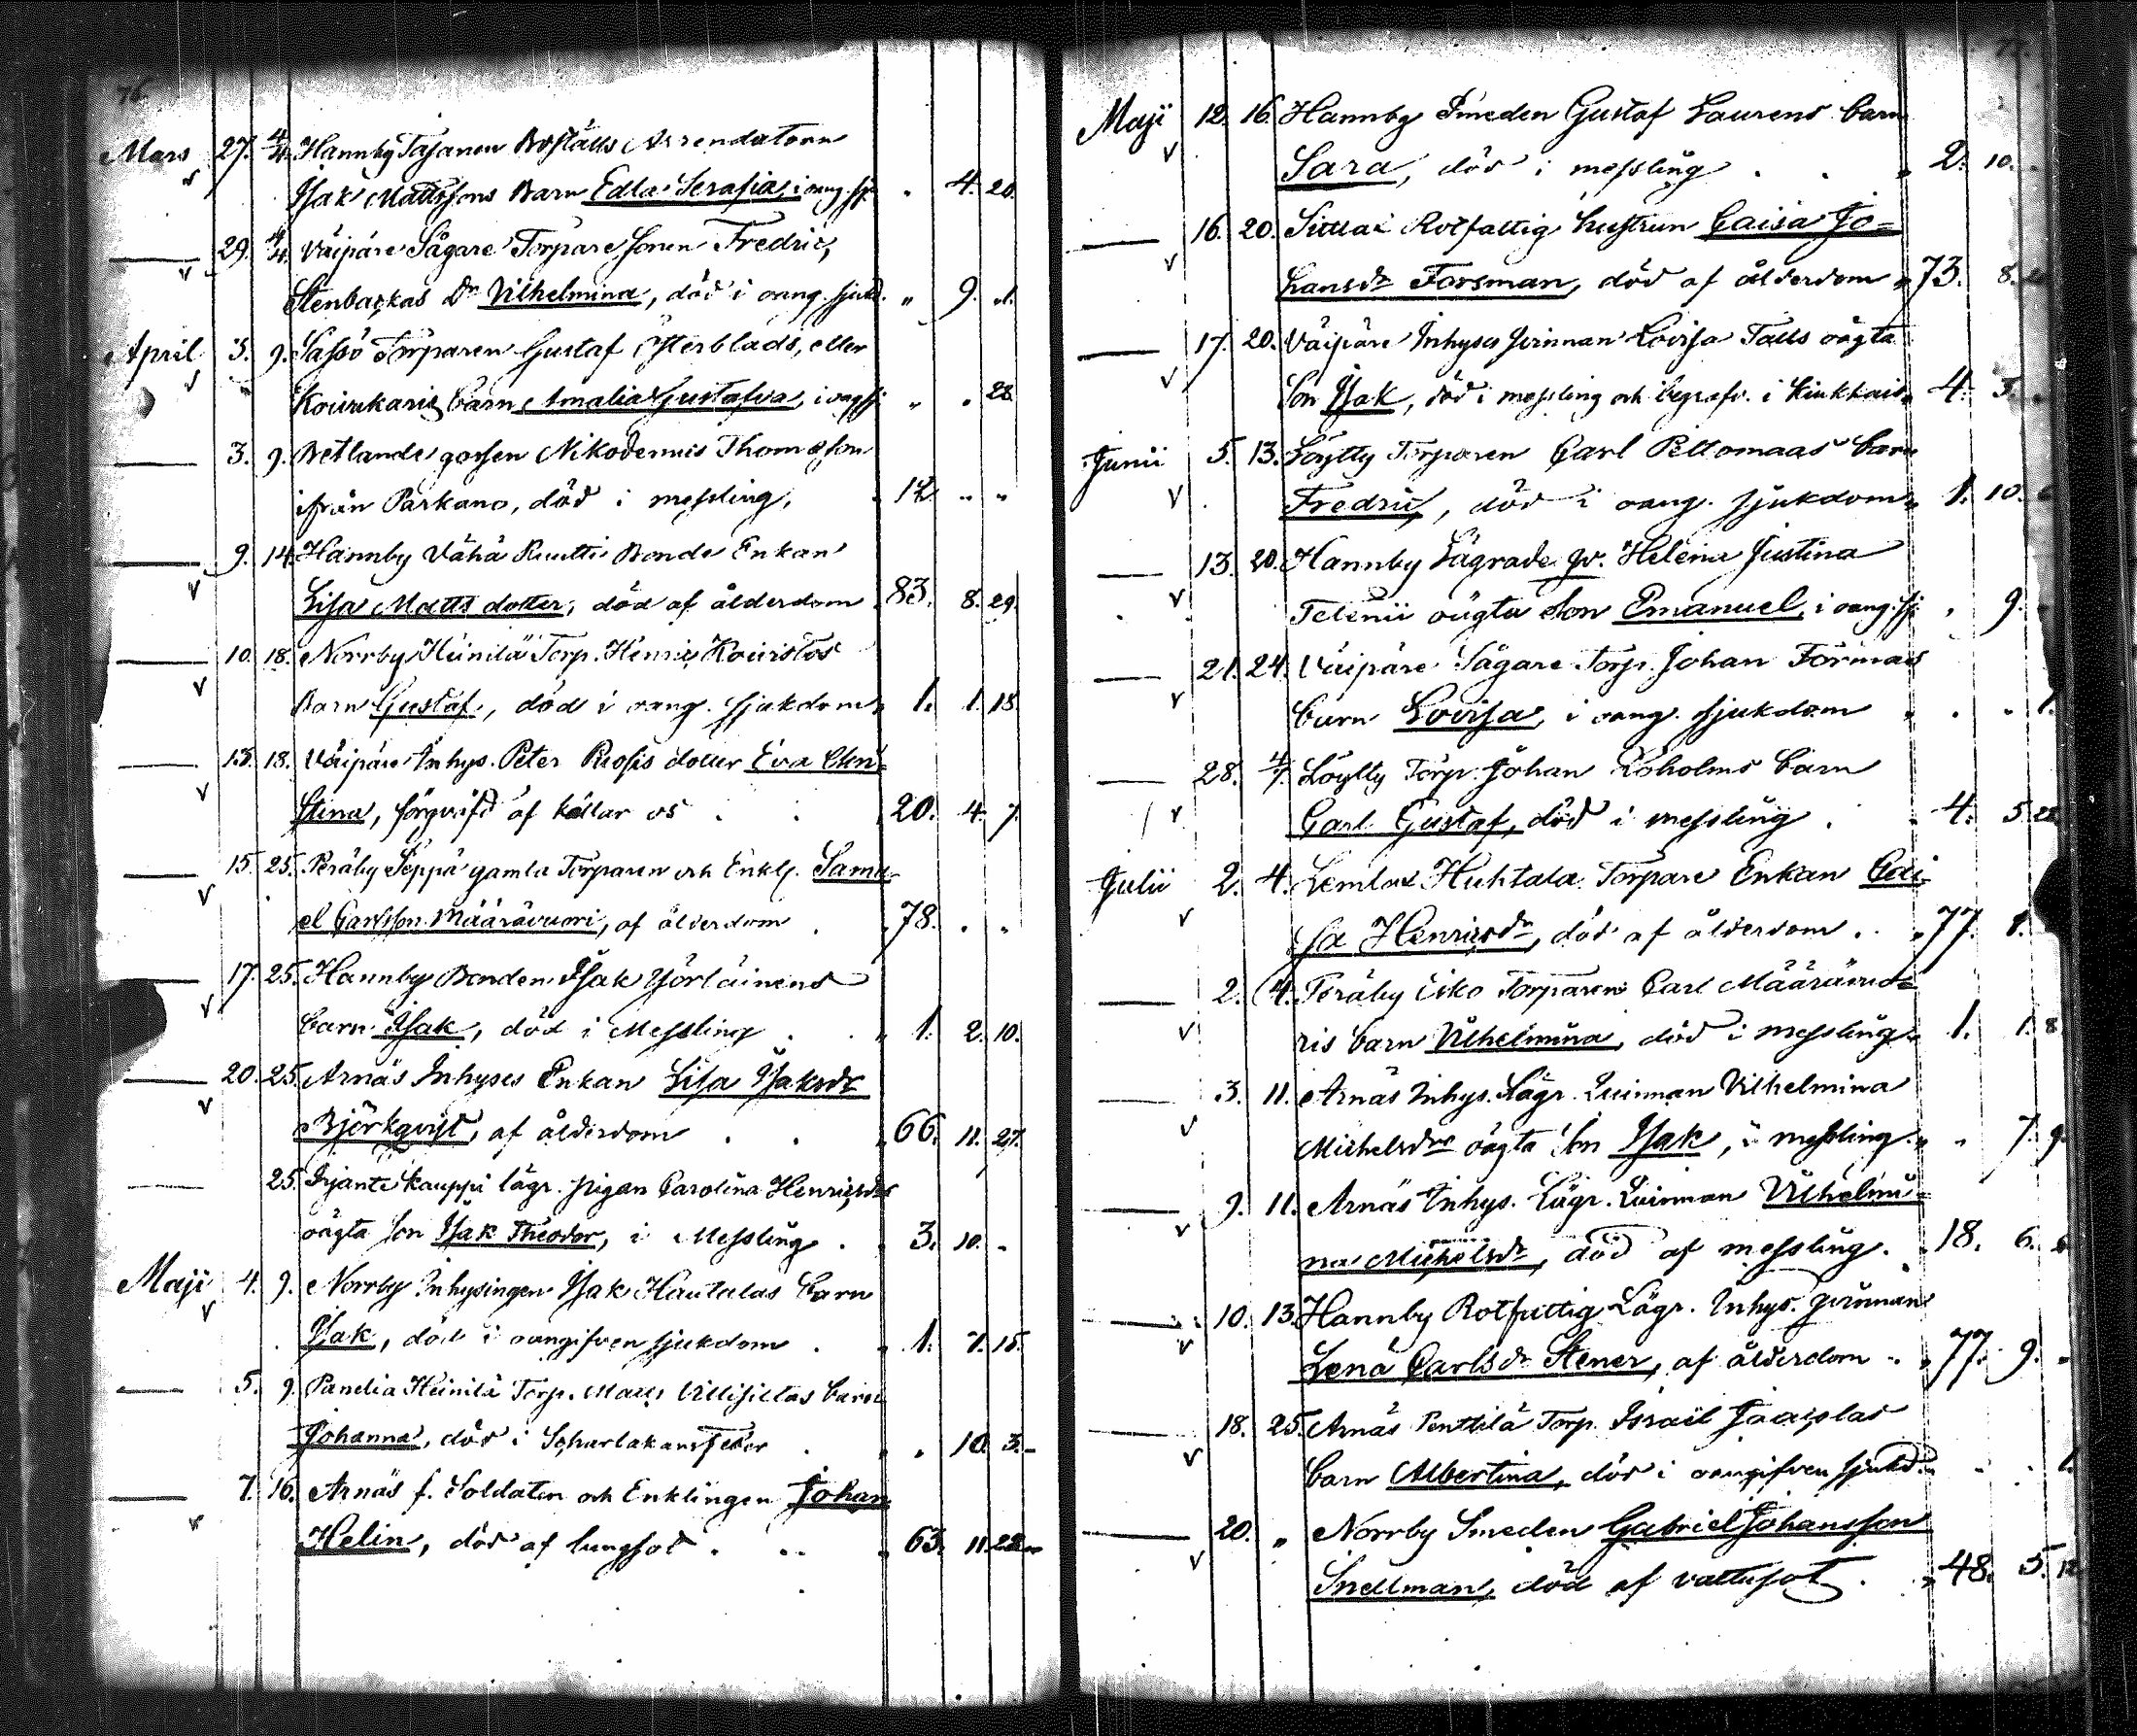 76.
Mars 27. 4/4. Hannby Tasanen Boställs Arrendatorn
Isak Mattssons Barn Edla Serafia, i oang. sj. " 4. 20.
29. 4/4. Väipäre Sågare Torpare sonen Fredric
Stenbackas Dr Vilhelmina, död i oang. sjukd. " 9. 1.
April 3. 9. Sassö Torparen Gustaf Österblads, eller
Koivukaris barn Amalia Gustafva, i oang sj. " . 28
3. 9. Betlande gossen Nikodemus Thomasson
ifrån Parkano, död i messling, 12 " "
9. 14. Hannby Vähä Ruutti Bonde Enkan
Lisa Matts dotter, död af ålderdom 83. 8. 29.
10. 18. Norrby Heinilä Torp. Henric Koivistos
Barn Gustaf, död i oang. sjukdom " 1. 1. 18
13. 18. Väipäre Inhys. Peter Rosis dotter Eva Chri-
stina, förqväfd af kållar os . . 20. 4. 7.
15. 25. Peräby Seppä gamla Torparen och Enkl. Samu-
el Carlsson Määrävuori, af ålderdom . 78. . "
17. 25. Hannby Bonden Isak Yörläinens
barn Isak, död i Messling . . " 1. 2. 10.
20. 25. Arnäs Inhyses Enkan Lisa Isaksdr
Björkqvist, af ålderdom . . 66. 11. 27.
25. Irjante Kauppi lägr. pigan Carolina Henricsdrs
oägta son Isak Theodor, i Messling . 3. 10. -
Maji 4. 9. Norrby Inhysingen Isak Hautalas barn
Isak, död i oangifven sjukdom . " 1. 7. 15.
5. 9. Panelia Heinilä Torp. Matts Villisillas barn
Johanna, död i Scharlakansfeber . " . 10. 3.
7. 16. Arnäs f. Soldaten och Enklingen Johan
Helin, död af lungsot . .. 63. 11. 22
77.
Maji 12. 16. Hannby Smeden Gustaf Laurens barn
Sara, död i messling . . " 2. 10.
16. 20. Sutlax Rotfattig hustrun Caisa Jo-
hansdr Forsman, död af ålderdom " 73. 8.
17. 20. Väipäre Inhyses qvinnan Lovisa Talls oägta
Son Isak, död i messling och begrafv. i Kiukkais " 4. 3.
Junii 5. 13. Löytty Torparen Carl Peltomaas barn
Fredric, död i oang. sjukdom " 1. 10.
13. 20. Hannby Lägrade qv. Helena Justina
Telenii oägta son Emanuel, i oang. sj. " 9.
21. 24. Väipäre Sågare Torp. Johan Formas
barn Lovisa, i oang. sjukdom " . . 1.
28. 4/7. Löytty Torp. Johan Röholms barn
Carl Gustaf, död i messling . " 4. 5
Julii 2. 4. Lemlax Huhtala Torpare Enkan Cai-
sa Henricsdr, död af ålderdom . " 77. 8.
2. 4. Peräby Eiko Torparen Carl Määrävuo-
ris barn Vilhelmina, död i messling " 1. 1. 8
3. 11. Arnäs Inhys. Lägr. Quinnan Vilhelmina
Michelsdrs oägta Son Isak, i messling " . 7. 9.
9. 11. Arnäs Inhys. Lägr. Quinnan Vilhelmi-
na Michelsdr, död af messling . " 18. 6.
10. 13. Hannby Rotfattig Lägr. Inhys. qvinnan
Lena Carlsdr Stener, af ålderdom . " 77. 9. "
18. 25. Arnäs Penttilä Torp. Israël Jaacolas
barn Albertina, död i oangifven sjukd. " . . 1.
20. " Norrby Smeden Gabriel Johansson
Snellman, död af vattusot . " 48. 5. 12